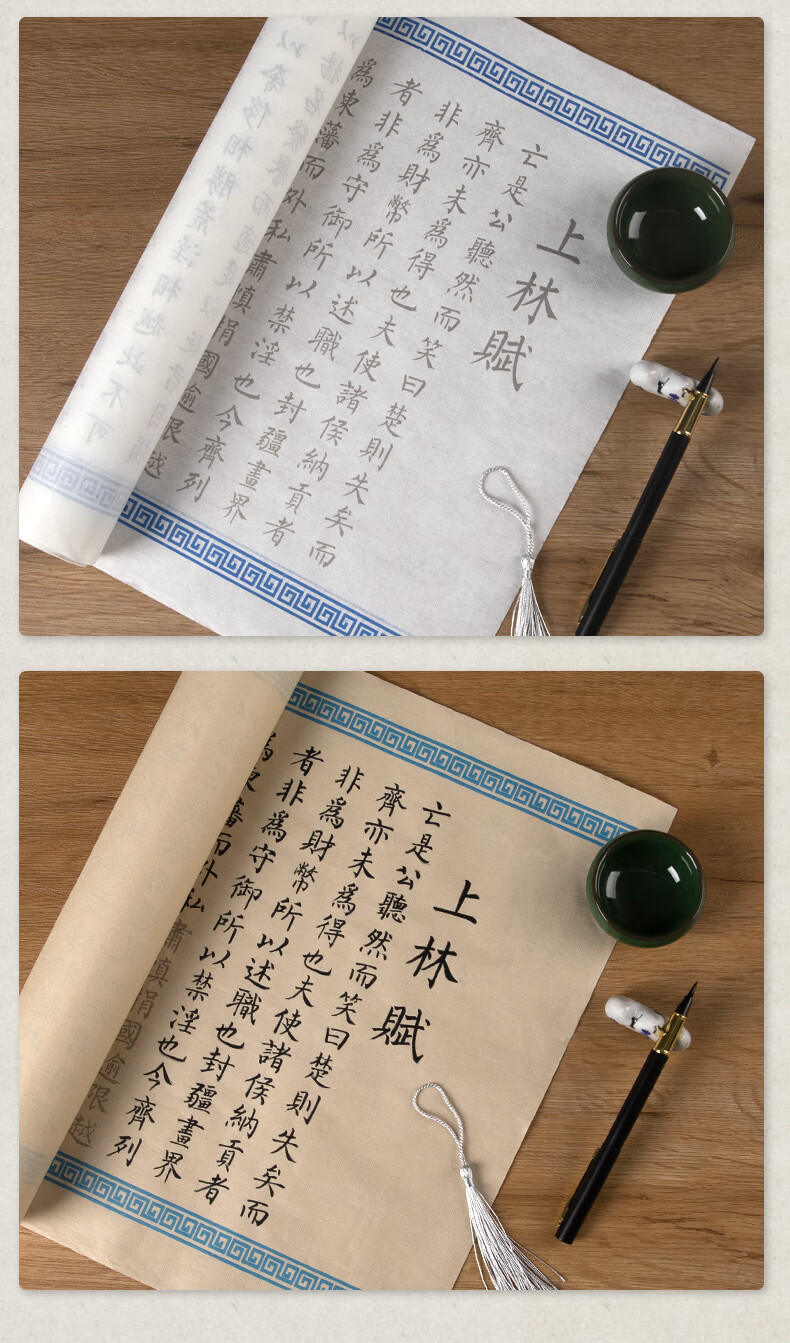 上林賦
亡是公聽然而笑曰楚則失矣而
齊亦未為得也夫使諸侯納貢者
非為財幣所以述職也封疆畫界
者非為守御所以禁淫也今齊列
為東藩而外私肅慎捐國逾限越
上林賦
亡是公聽然而笑曰楚則失矣而
齊亦未為得也夫使諸侯納貢者
非為財幣所以述職也封疆畫界
者非為守御所以禁淫也今齊列
為東藩而外私肅慎捐國逾限越